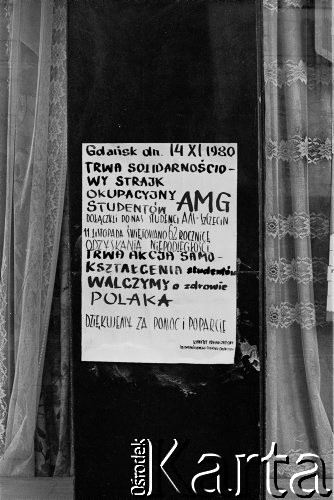 Gdańsk dn. 14 XI 1980
TRWA SOLIDARNOŚCIO-
WY STRAJK
OKUPACYJNY
STUDENTÓW AMG
DOŁĄCZYLI DO NAS STUDENCI AM-SZCZECIN
11 LISTOPADA ŚWIĘTOWANO 62 ROCZNICĘ
ODZYSKANIA NIEPODLEGŁOŚCI
TRWA AKCJA SAMO-
KSZTAŁCENIA studentów
WALCZYMY o zdrowie
POLAKA
DZIĘKUJEMY ZA POMOC i POPARCIE
Ośrodek
Karta